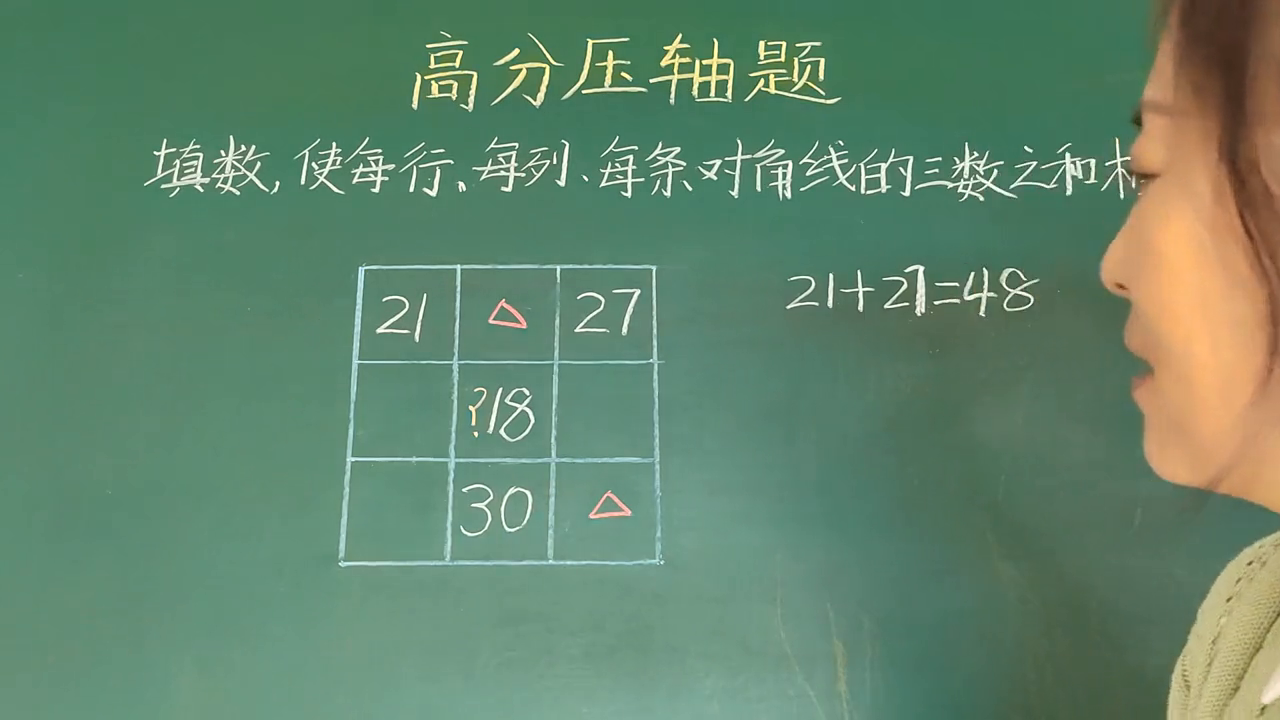 高分压轴题
填数,使每行、每列、每条对角线的三数之和
21 △ 27
21+27=48
?18
30 △